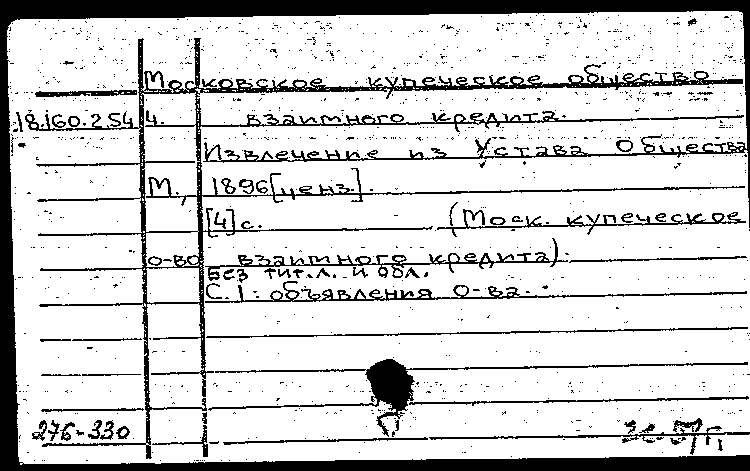 Московское купеческое общество
18.160.254 4. взаимного кредита.
Извлечение из Устава Общества
М., 1896[ценз].
[4]с. (Моск. купеческое
о-во взаимного кредита).
Без тит.л. и обл.
С.1: объявления О-ва.
276-330